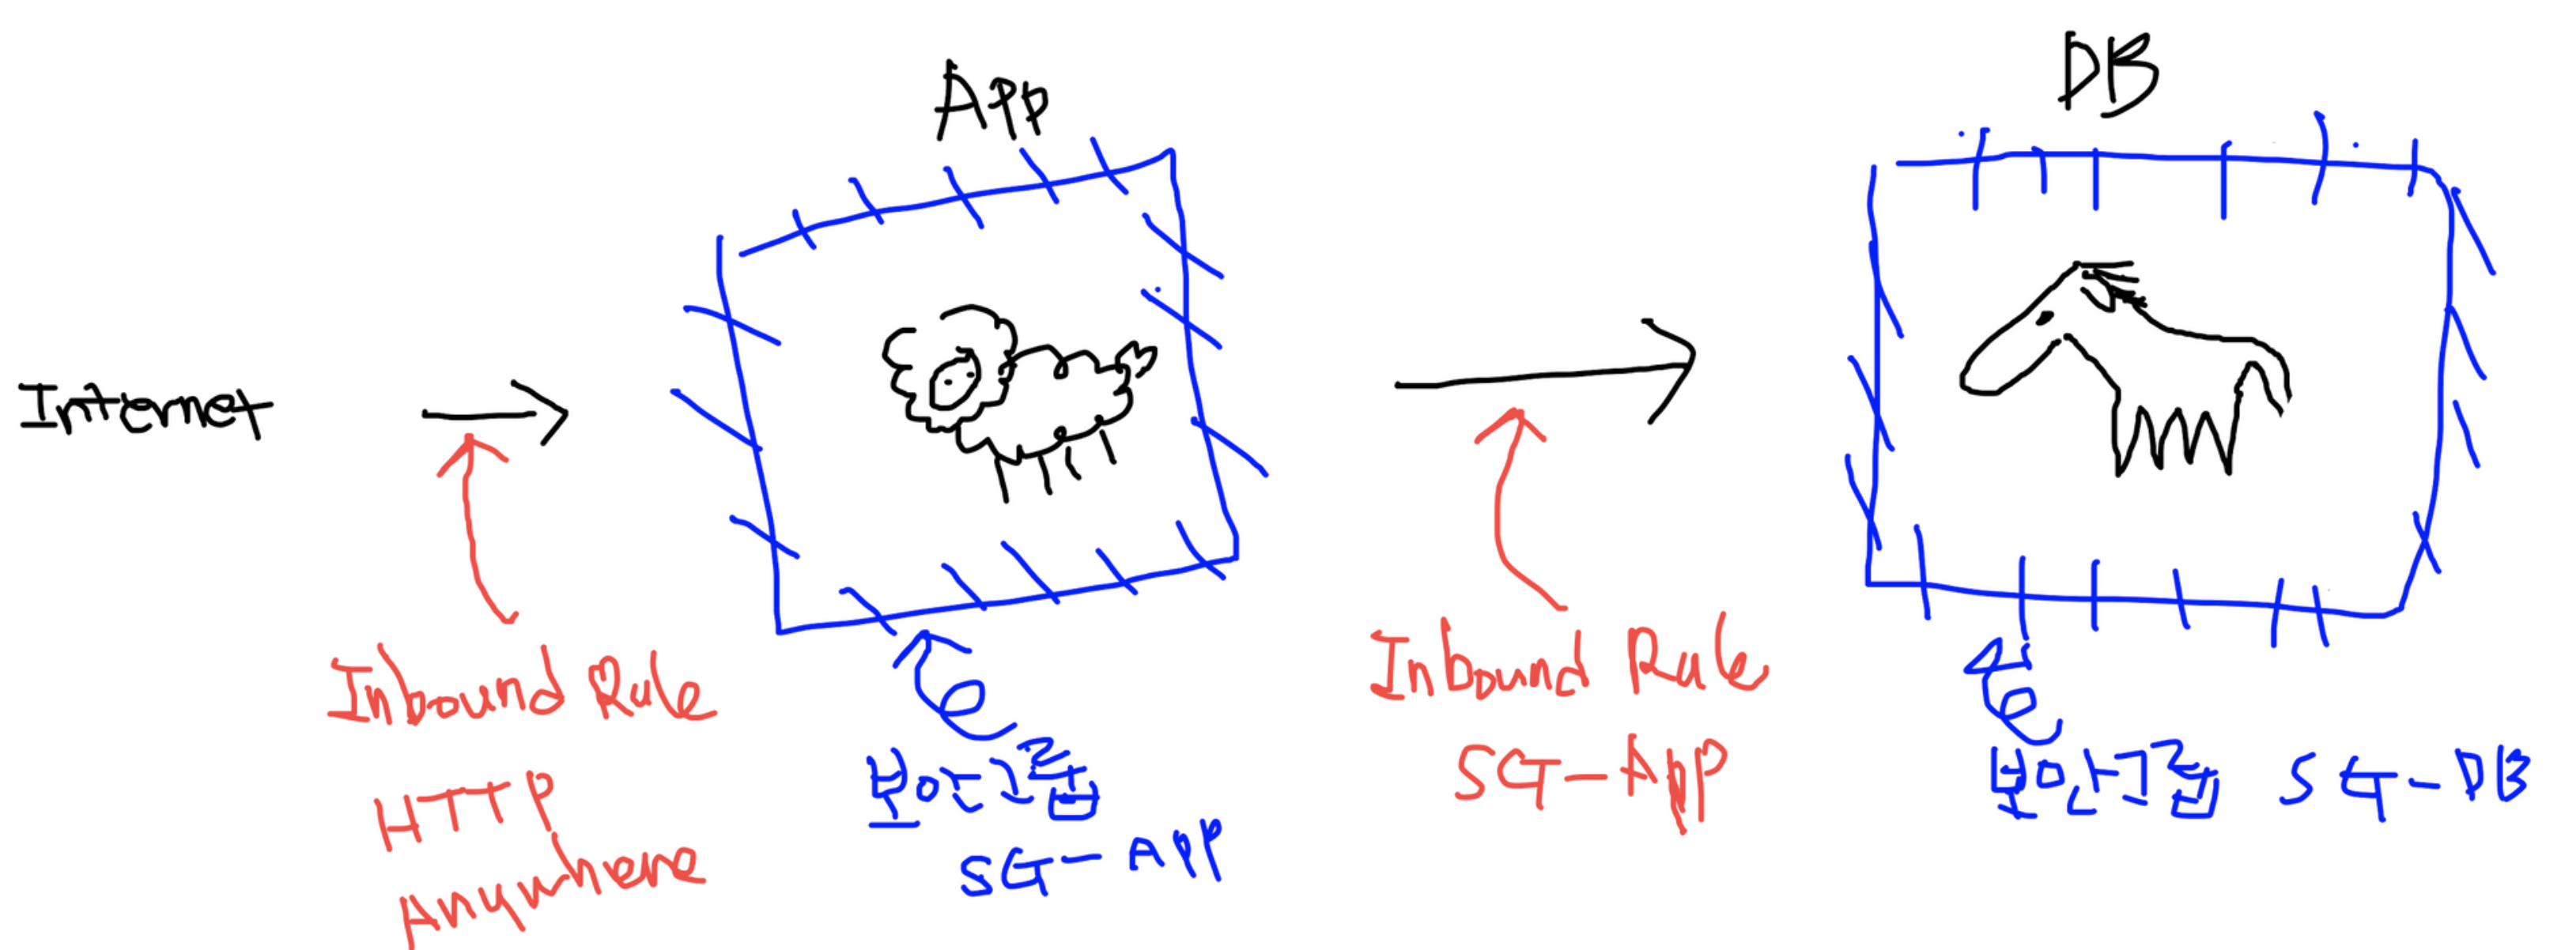 App
DB
Internet
Inbound Rule
HTTP
Anywhere
보안그룹
SG-APP
Inbound Rule
SG-App
보안그룹 SG-DB